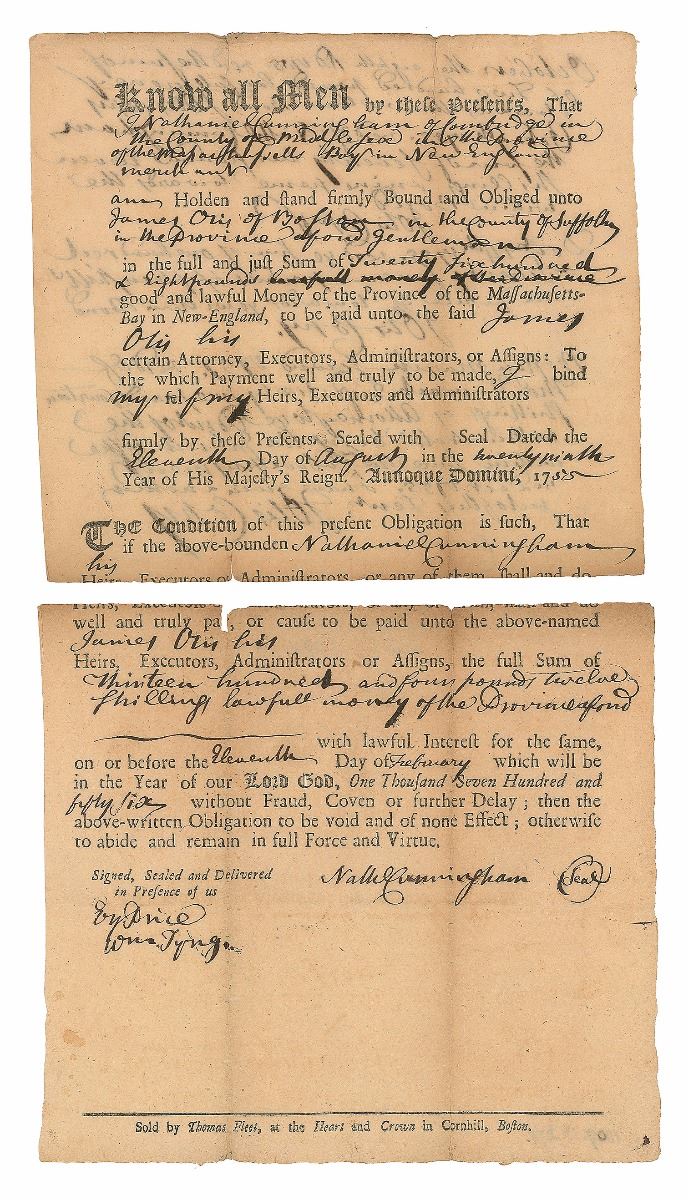 Know all Men by these Presents, That
I Nathaniel Cunningham of Cambridge in
the County of Middlesex in the Province
of the Massachusetts Bay in New England
merchant
am Holden and ſtand firmly Bound and Obliged unto
James Otis of Boston in the County of Suffolk
in the Province aforesd Gentleman
in the full and juſt Sum of Twenty six hundred
& Eight pounds lawfull money of the Province
good and lawful Money of the Province of the Maſſachuſetts-
Bay in New-England, to be paid unto the ſaid James
Otis his
certain Attorney, Executors, Adminiſtrators, or Aſſigns: To
the which Payment well and truly to be made, I bind
my ſelf my Heirs, Executors and Adminiſtrators
firmly by theſe Preſents. Sealed with Seal Dated the
Eleventh Day of August in the twenty ninth
Year of His Majeſty's Reign. Annoque Domini, 1755
THE Condition of this preſent Obligation is ſuch, That
if the above-bounden Nathaniel Cunningham
his
Heirs, Executors or Adminiſtrators, or any of them, ſhall and do
Heirs, Executors or Adminiſtrators, or any of them, ſhall and do
well and truly pay, or cauſe to be paid unto the above-named
James Otis his
Heirs, Executors, Adminiſtrators or Aſſigns, the full Sum of
Thirteen hundred and four pounds twelve
shillings lawfull money of the Province aforesd
with lawful Intereſt for the ſame,
on or before the Eleventh Day of February which will be
in the Year of our Lord God, One Thouſand Seven Hundred and
fifty six without Fraud, Coven or further Delay; then the
above-written Obligation to be void and of none Effect; otherwiſe
to abide and remain in full Force and Virtue.
Signed, Sealed and Delivered
in Preſence of us
Nath Cunningham Seal
Ez Price
Wm Tyng
Sold by Thomas Fleet, at the Heart and Crown in Cornhill, Boſton.